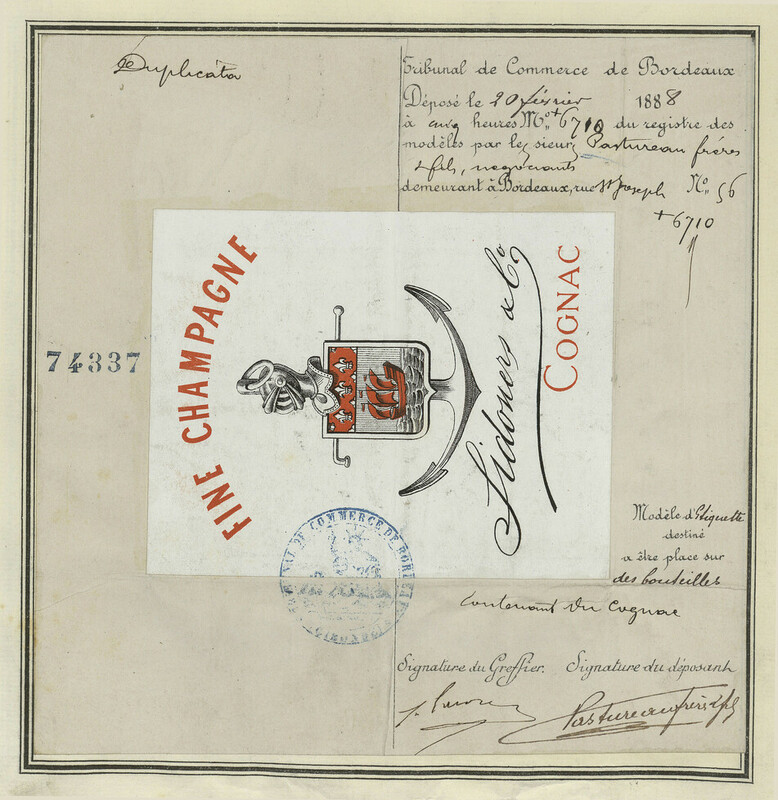 Duplicata
Tribunal de Commerce de Bordeaux
Déposé le 20 février 1888
à heures No + 6710 du registre des
modèles par les sieurs Pastureau frères
& fils, negociants
demeurant à Bordeaux, rue St Joseph No 56
+ 6710
74337
FINE CHAMPAGNE
Sidoners & Co
COGNAC
TRIBUNAL DE COMMERCE DE BORDEAUX
GIRONDE
Modèle d'Etiquette
destiné
a être place sur
des bouteilles
contenant du Cognac
Signature du Greffier. Signature du déposant
Pastureau frères & fils